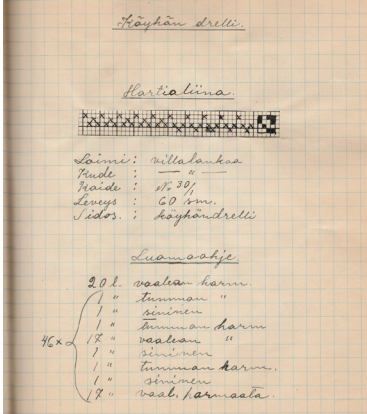 Köyhän drelli.
Hartialiina.
Loimi : villalankaa
Kude : — " —
Kaide : No 30/1
Leveys : 60 sm.
Sidos. : köyhändrelli
Luomaohje.
20 l. vaalean harm.
1 " tumman "
1 " sininen
1 " tumman harm
17 " vaalean "
1 " sininen
1 " tumman harm.
1 " sininen
17 " vaal. harmaata.
46 x